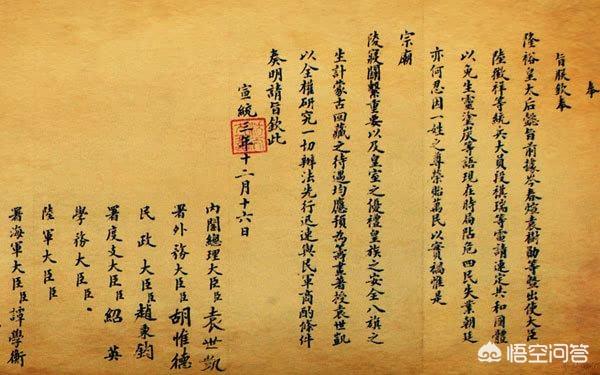 奉
旨朕欽奉
隆裕皇太后懿旨前據岑春煊袁樹勛等暨出使大臣
陸徵祥等統兵大員段祺瑞等電請速定共和國體
以免生靈塗炭等語現在時局阽危四民失業朝廷
亦何忍因一姓之尊榮貽萬民以實禍惟是
宗廟
陵寢關繫重要以及皇室之優禮皇族之安全八旗之
生計蒙古回藏之待遇均應預為籌畫著授袁世凱
以全權研究一切辦法先行迅速與民軍商酌條件
奏明請旨欽此
宣統三年十二月十六日
內閣總理大臣臣袁世凱
署外務大臣臣胡惟德
民政大臣臣趙秉鈞
署度支大臣臣紹英
學務大臣臣
陸軍大臣臣
署海軍大臣臣譚學衡
悟空问答